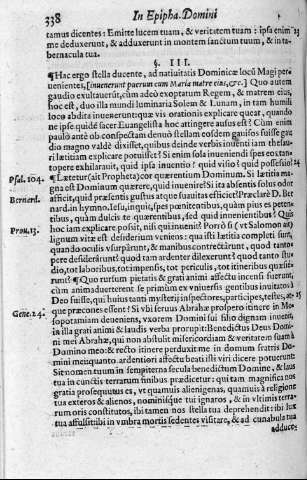 338 In Epipha. Domini
tamus dicentes: Emitte lucem tuam, & veritatem tuam: ipsa enim
me deduxerunt, & adduxerunt in montem sanctum tuum, & in ta-
bernacula tua.
§. III.
¶Hac ergo stella ducente, ad nativitatis Dominicæ locū Magi per-
venientes, [invenerunt puerum cum Maria matre eius, &c.] Quo autem
gaudio exultaverit, cùm adeò exoptatum Regem, & matrem eius,
hoc est, duo illa mundi luminaria Solem & Lunam, in tam humili
loco abdita invenerunt: quæ vis orationis explicare queat, quando
ne ipse quidē sacer Euangelista hoc attingere ausus est? Cùm enim
paulò antè ob conspectam denuò stellam eosdem gavisos fuisse gau
dio magno valdè dixisset, quibus deinde verbis inventi iam thesau-
ri lætitiam explicare potuisset? Si enim sola inveniendi spes eos tan-
topere exhilaravit, quid ipsa inventio? quid visio? quid possessio?
Psal. 104. ¶Lætetur (ait Propheta) cor quærentium Dominum. Si lætitia ma-
gna est Dominum quærere, quid invenire? Si ita absentis solus odor
Bernard. afficit, quid præsentis gustus atque suavitas efficiet? Præclarè D. Ber
nard. in hymno, Iesu, inquit, spes pœnitentibus, quàm pius es peten-
tibus, quàm dulcis te quærentibus, sed quid invenientibus? Quis
Prou. 13. hoc iam explicare possit, nisi qui invenit? Porrò si (vt Salomon ait)
lignum vitæ est desiderium veniens: quo isti lætitia completi sunt,
quando oculis vsurpârunt, & manibus contrectârunt, quod tanto-
pere desiderârunt? quod tam ardenter dilexerunt? quod tanto stu-
dio, tot laboribus, tot impensis, tot periculis, tot itineribus quæsie-
runt? ¶Quo rursum pietatis & grati animi affectu incensi fuerunt,
cùm animadverterent se primùm ex vniversis gentibus invitatos à
Deo fuisse, qui huius tanti mysterij inspectores, participes, testes, at-
Gene. 24. que præcones essent? Si vbi servus Abrahæ prospero itinere in Me-
sopotamiam deveniens, vxorem Domini sui filio dignam invenit,
in illa grati animi & laudis verba prorupit: Benedictus Deus Domi-
ni mei Abrahæ, qui non abstulit misericordiam & veritatem suam à
Domino meo: & recto itinere perduxit me in domum fratris Do-
mini mei: quanto ardentiori affectu beati isti viri dicere potuerunt:
Sit nomen tuum in sempiterna secula benedictum Domine, & laus
tua in cunctis terrarum finibus prædicetur: qui tam magnifica nos
gratia prosequutus es, vt quamvis alienigenas, quamvis à religione
tua exteros & alienos, nominisque tui ignaros, & in vltimis terra-
rum oris constitutos, ibi tamen nos stella tua deprehendit: ibi lux
tua affulsit: ibi in vmbra mortis sedentes visitare, & ad cunabula tua
adduce-